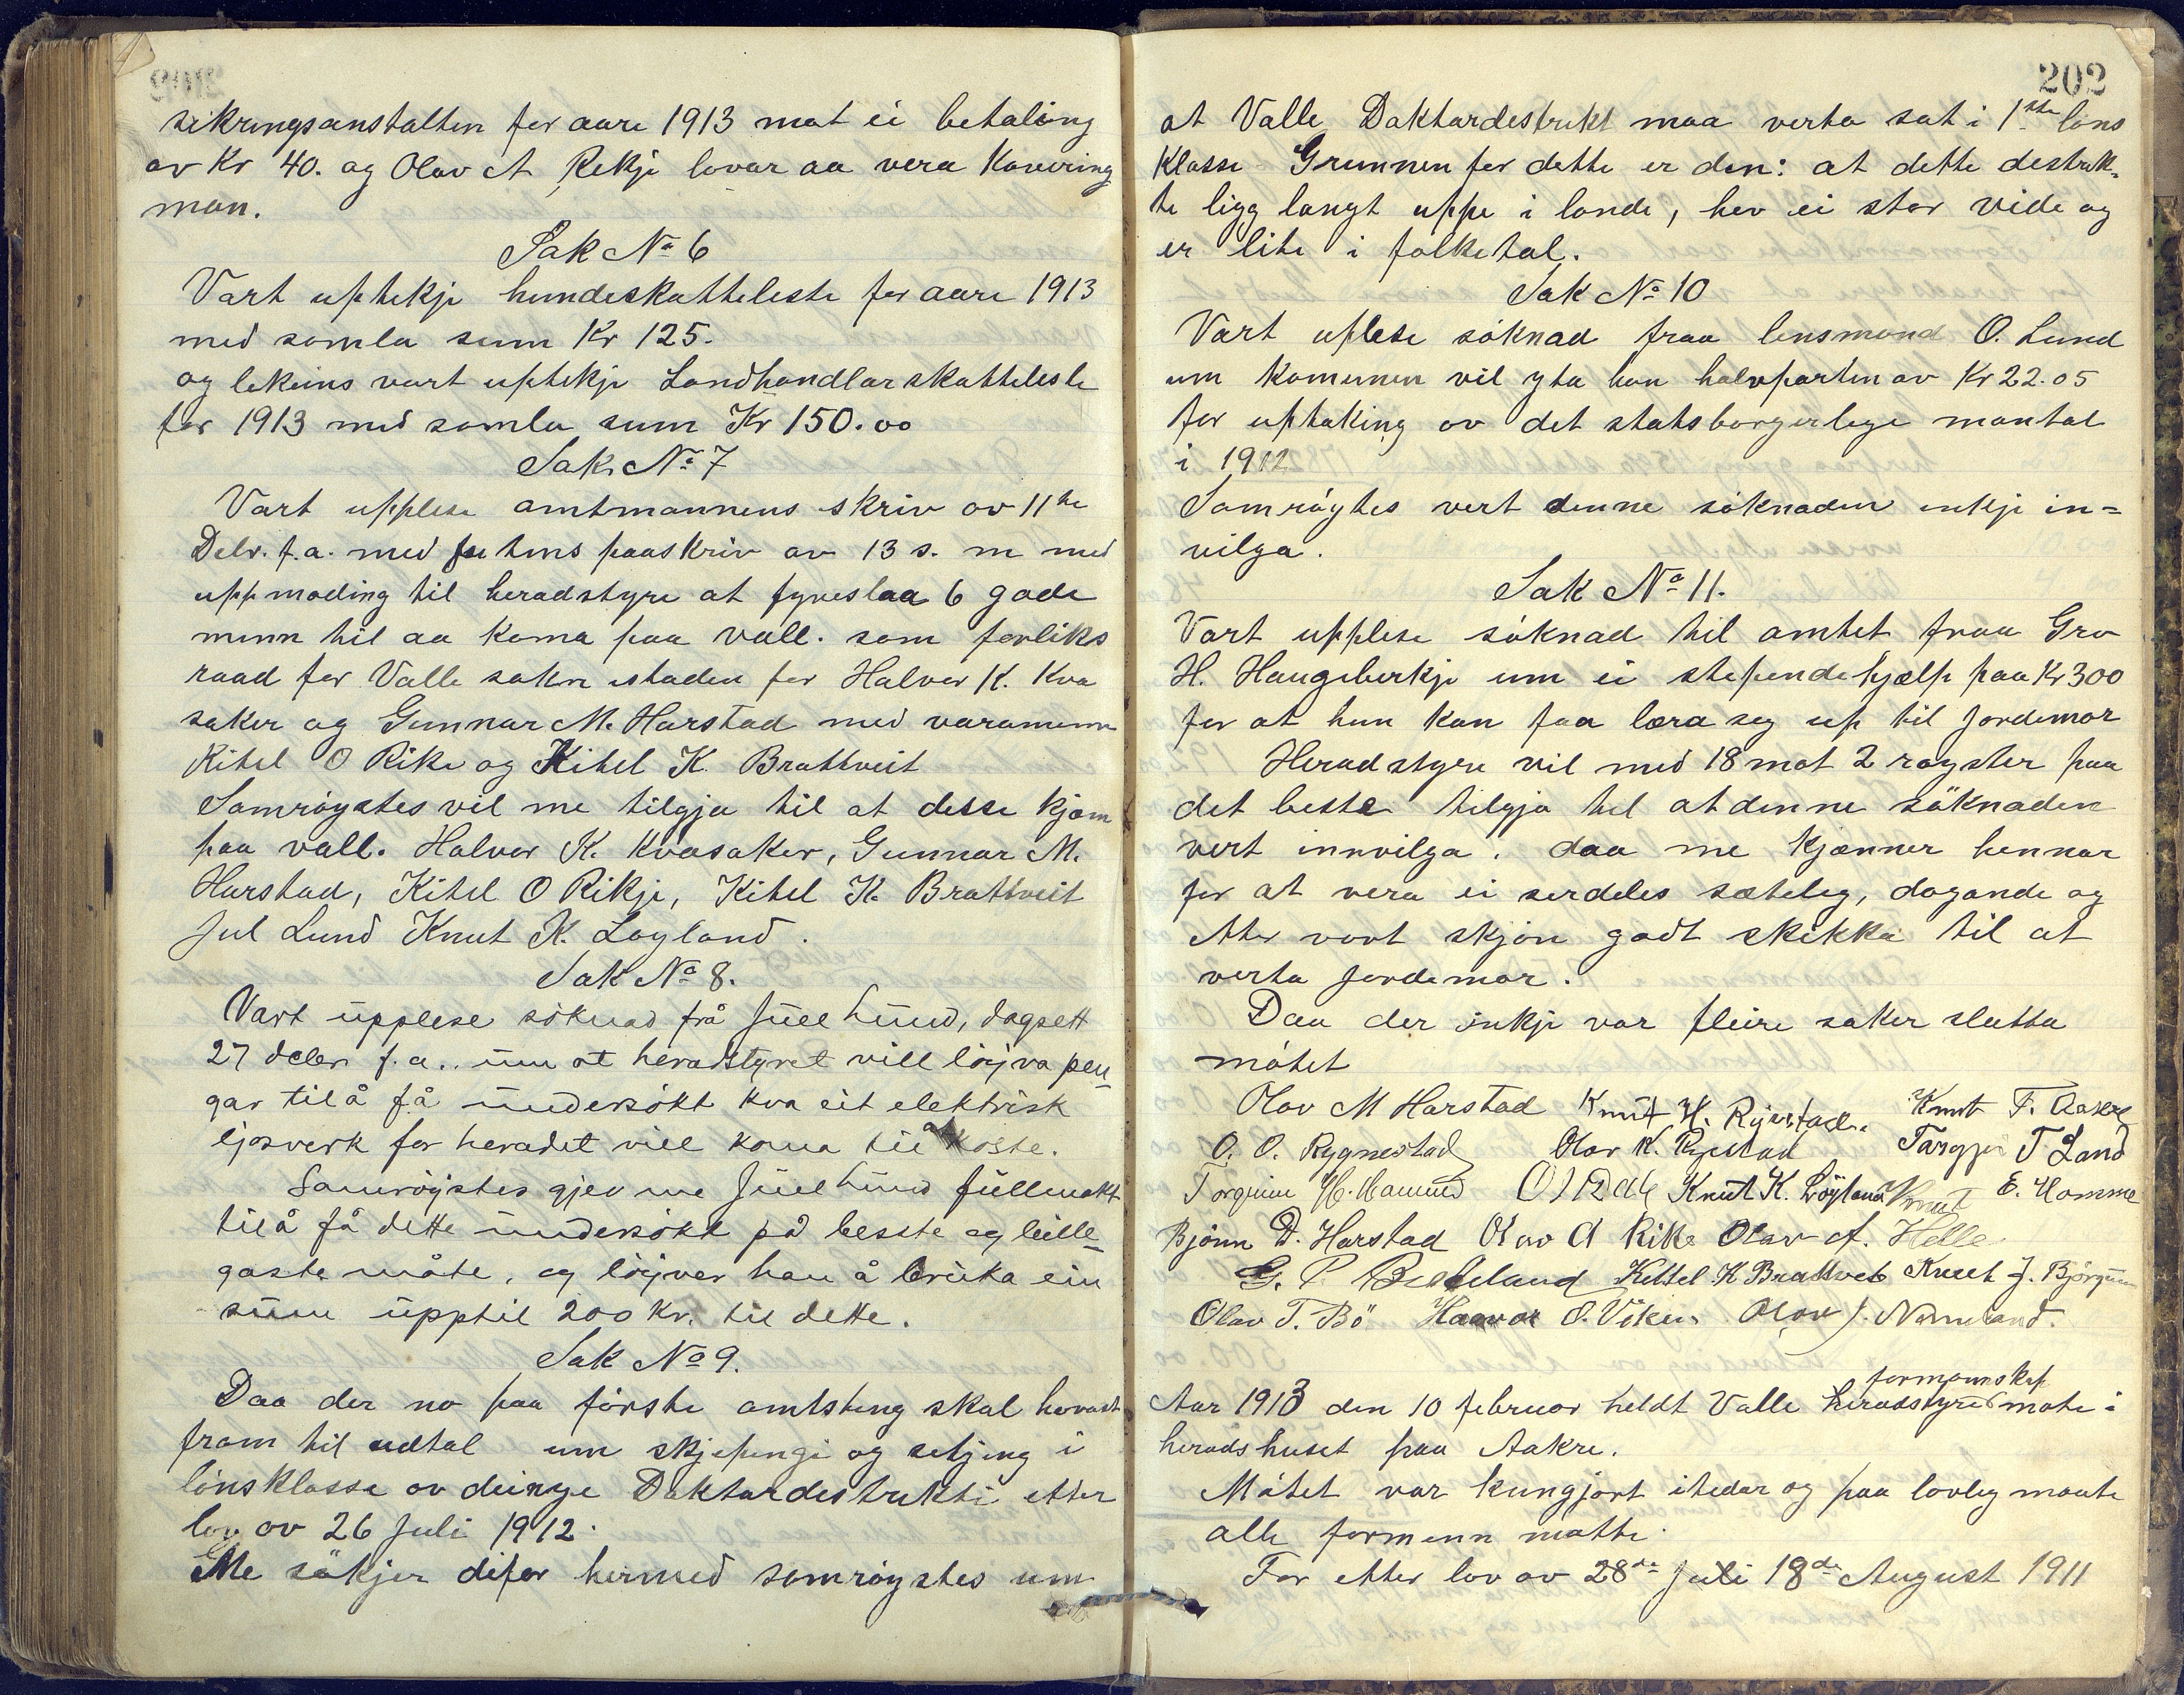 sikringsanstalten for aare 1913 mot ei betaling
av Kr 40. og Olav A Rikje lovar aa vera Kavering
man.
Sak No 6
Vart uptekje hundeskatteleste for aare 1913
med samla sum Kr 125.
og lekeins vart uptekje Landhandlarskatteleste
for 1913 med samla sum Kr 150.00
Sak No 7
Vart upplese amtmannens skriv av 11te
Debr. f.a. med futens paaskriv av 13 s. m med
uppmoding til heradstyre at fyreslaa 6 gode
menn til aa koma paa vall. som forliks
raad for Valle sokn istaden for Halvor K. Kva
saker og Gunnar M. Harstad med varamenn
Kitel O Rike og Kitel K. Brattveit
Samröystes vil me tilgja til at desse kjem
paa vall. Halvor K. Kvasaker, Gunnar M.
Harstad, Kitel O Rikje, Kitel K. Brattveit
Jul Lund Knut K. Løyland.
Sak No 8.
Vart upplese söknad frå Juel Lund, dagsett
27 debr f.a.. um at heradstyret vill löyva pen-
gar til å få undersökt kva eit elektrisk
ljosverk for heradet vill koma til at koste.
Samröystes gjev me Juel Lund fullmakt
til å få dette undersökt på besste og bille-
gaste måte, og löyver han å bruka ein
sum upptil 200 Kr. til dette.
Sak No 9.
Daa der no paa förste amtsting skal
fram til udtal um skjepingi og setjing i
lönsklasse av deinye Daktardestrikti etter
lov av 26 Juli 1912.
Me sökjer difor hermed samröystes um
202
at Valle Daktardestrikt maa verta sat i 1ste löns
Klasse Grunnen for dette er den: at dette destrik-
te ligg langt uppe i lande, hev ei stor vide og
er lite i folketal.
Sak No 10
Vart uplese söknad fraa lensmand O. Lund
um komunen vil yta han halvparten av Kr 22.05
for uptaking av det statsborgerlege mantal
i 1912
Samröystes vert denne söknaden inkje in=
vilga.
Sak No 11.
Vart upplese söknad til amtet fraa Gro
H. Haugeberkje um ei stependehjælp paa Kr 300
for at hun kan faa læra seg up til Jordemor
Heradstyre vil med 18 mot 2 röyster paa
det beste tilgja til at denne söknaden
vert innvilga. daa me kjenner hennar
for at vera ei serdeles sæteleg, dogande og
etter vort skjön godt skikka til at
verta Jordemor.
Daa der inkje var fleire saker slutta
mötet
Olav M Harstad Knut H. Rysstad. Knut T. Aakre
O. O. Rygnestad Olav K. Rysstad Targjei T Land
Torgrim H. Homme Knut K. Löyland Knut E. Homme
Björn D. Harstad Olav A Rike Olav A. Helle
G. P. Besteland Kittel K Brattveit Knut J. Björgum
Olav T. Bö Haavar O. Viken Olav J. Nomeland.
formannskap
Aar 1913 den 10 februar heldt Valle heradstyre möte i
heradshuset paa Aakre.
Mötet var kungjort itedar og paa lovleg maate
alle formenn mötte.
For etter lov av 28de Juli 18de August 1911